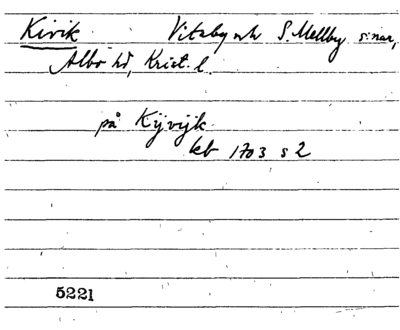 Kivik Vitaby och S. Mellby s:nar,
Albo hd, Krist. l.
på Kijvijk
kb 1703 s 2
5221